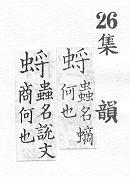 26
集韻
蛶
蟲名螪
何也
蛶
蟲名說文
商何也